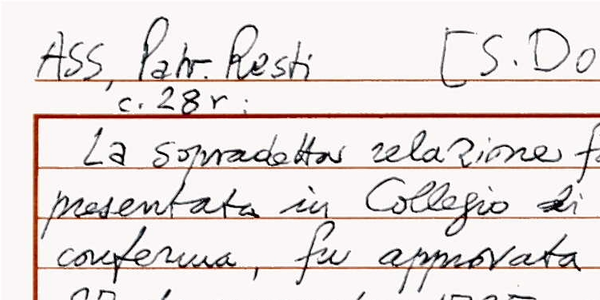 ASS, Patr. Resti [S. Do
c. 28 r:
La sopradetta relazione f
presentata in Collegio di
conferma, fu approvata